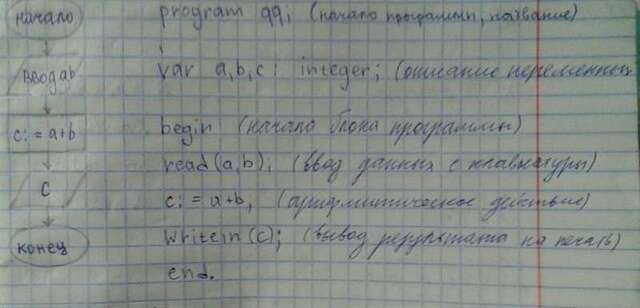 начало
ввод ab
c:=a+b
c
конец
program qq; (начало программы, название)
var a,b,c: integer; (описание переменных
begin (начало блока программы)
read(a,b); (ввод данных с клавиатуры)
c:=a+b, (арифметическое действие)
writeln(c); (вывод результата на печать)
end.